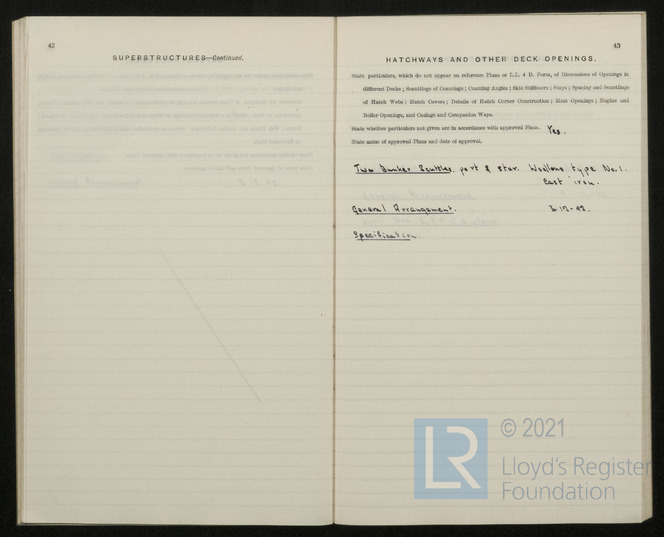 42
SUPERSTRUCTURES—Continued.
43
HATCHWAYS AND OTHER DECK OPENINGS.
State particulars, which do not appear on reference Plans or L.L. 4 D. Form, of Dimensions of Openings in
different Decks; Scantlings of Coamings; Coaming Angles; Side Stiffeners; Stays; Spacing and Scantlings
of Hatch Webs; Hatch Covers; Details of Hatch Corner Construction; Mast Openings; Engine and
Boiler Openings, and Casings and Companion Ways.
State whether particulars not given are in accordance with approved Plans. Yes.
State name of approved Plans and date of approval.
Two Bunker Scuttles, port & star. type No. 1.
Cast iron.
General Arrangement. 2-12-42.
Specification.
LR
© 2021
Lloyd's Register
Foundation